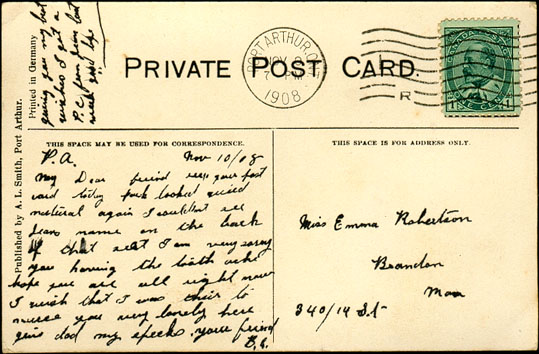 giving you my best
wishes I got a
P.C. from
week
Printed in Germany
Published by A. L. Smith, Port Arthur.
PRIVATE POST CARD.
PORT ARTHUR, ONT.
NOV
1908
R
CANADA POSTAGE
1 ONE CENT 1
THIS SPACE MAY BE USED FOR CORRESPONDENCE.
THIS SPACE IS FOR ADDRESS ONLY.
P.A. Nov 10/08
My Dear friend your post
card today looked
natural again I couldnt see
name on the back
of that I am very sorry
you having the tooth ache
hope you are all right now
I wish that I was their to
nurse you very lonely here
give dad my your friend
B.C.
Miss Emma Robertson
Brandon
Man
340/14 St